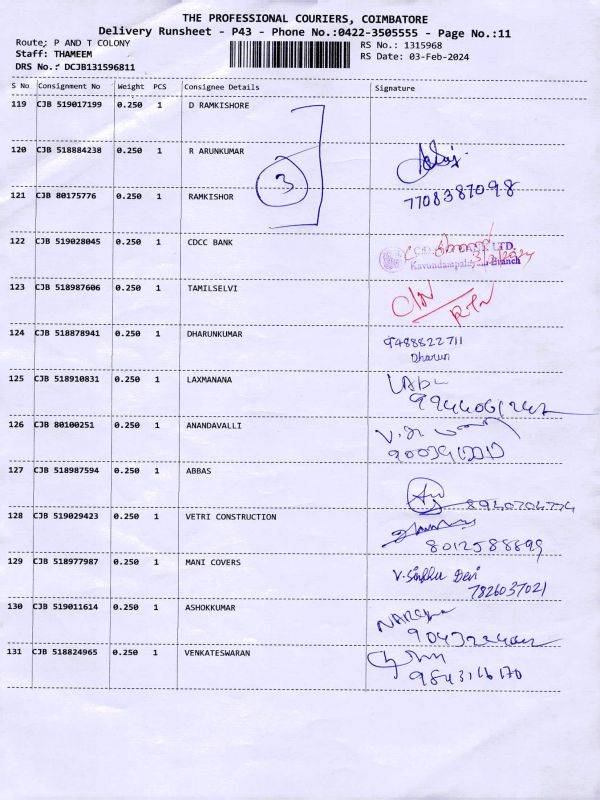 THE PROFESSIONAL COURIERS, COIMBATORE
Delivery Runsheet - P43 - Phone No.:0422-3505555 - Page No.:11
Route: P AND T COLONY
Staff: THAMEEM
DRS No.: DCJB131596811
RS No.: 1315968
RS Date: 03-Feb-2024
S No Consignment No Weight PCS Consignee Details Signature
119 CJB 519017199 0.250 1 D RAMKISHORE
120 CJB 518884238 0.250 1 R ARUNKUMAR
3
121 CJB 80175776 0.250 1 RAMKISHOR
7708387098
122 CJB 519028045 0.250 1 CDCC BANK
LTD.
Kavundampalayam Branch
3/2/2024
123 CJB 518987606 0.250 1 TAMILSELVI
124 CJB 518878941 0.250 1 DHARUNKUMAR
9488822711
Dharun
125 CJB 518910831 0.250 1 LAXMANANA
126 CJB 80100251 0.250 1 ANANDAVALLI
127 CJB 518987594 0.250 1 ABBAS
128 CJB 519029423 0.250 1 VETRI CONSTRUCTION
8012588899
129 CJB 518977987 0.250 1 MANI COVERS
V. Sindhu Devi
7826037021
130 CJB 519011614 0.250 1 ASHOKKUMAR
131 CJB 518824965 0.250 1 VENKATESWARAN
9843116170